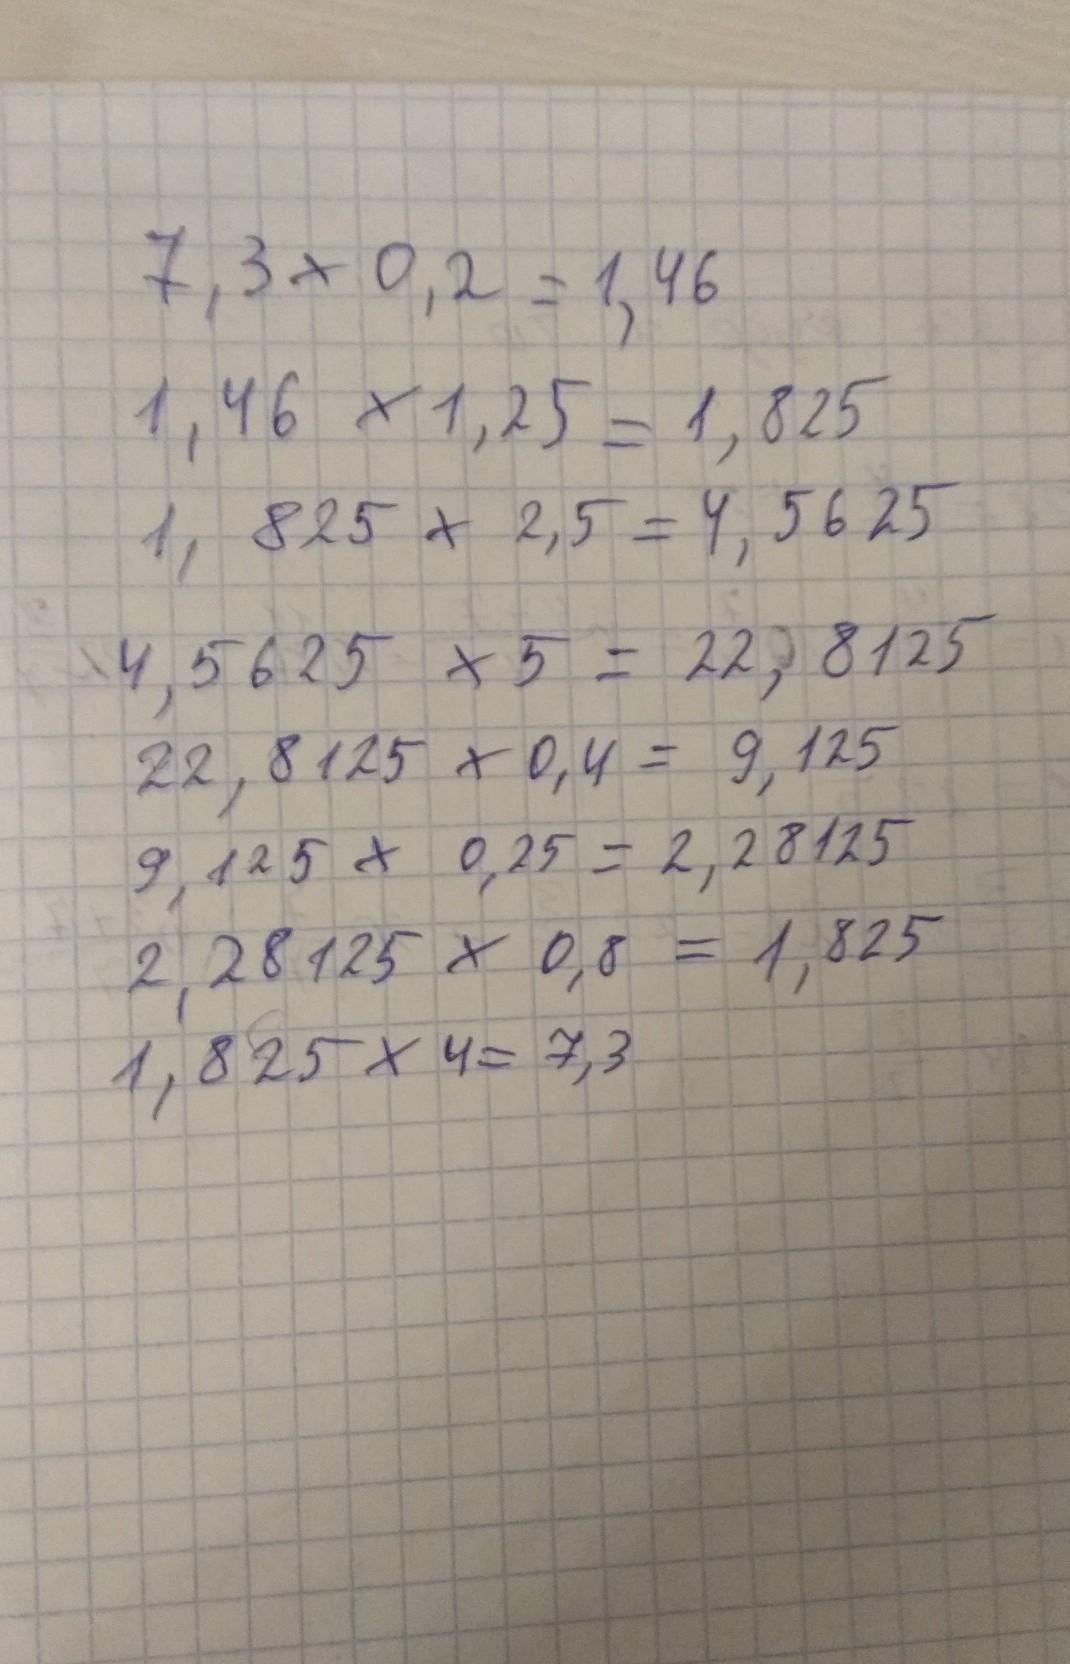 7,3 × 0,2 = 1,46
1,46 × 1,25 = 1,825
1,825 × 2,5 = 4,5625
4,5625 × 5 = 22,8125
22,8125 × 0,4 = 9,125
9,125 × 0,25 = 2,28125
2,28125 × 0,8 = 1,825
1,825 × 4 = 7,3